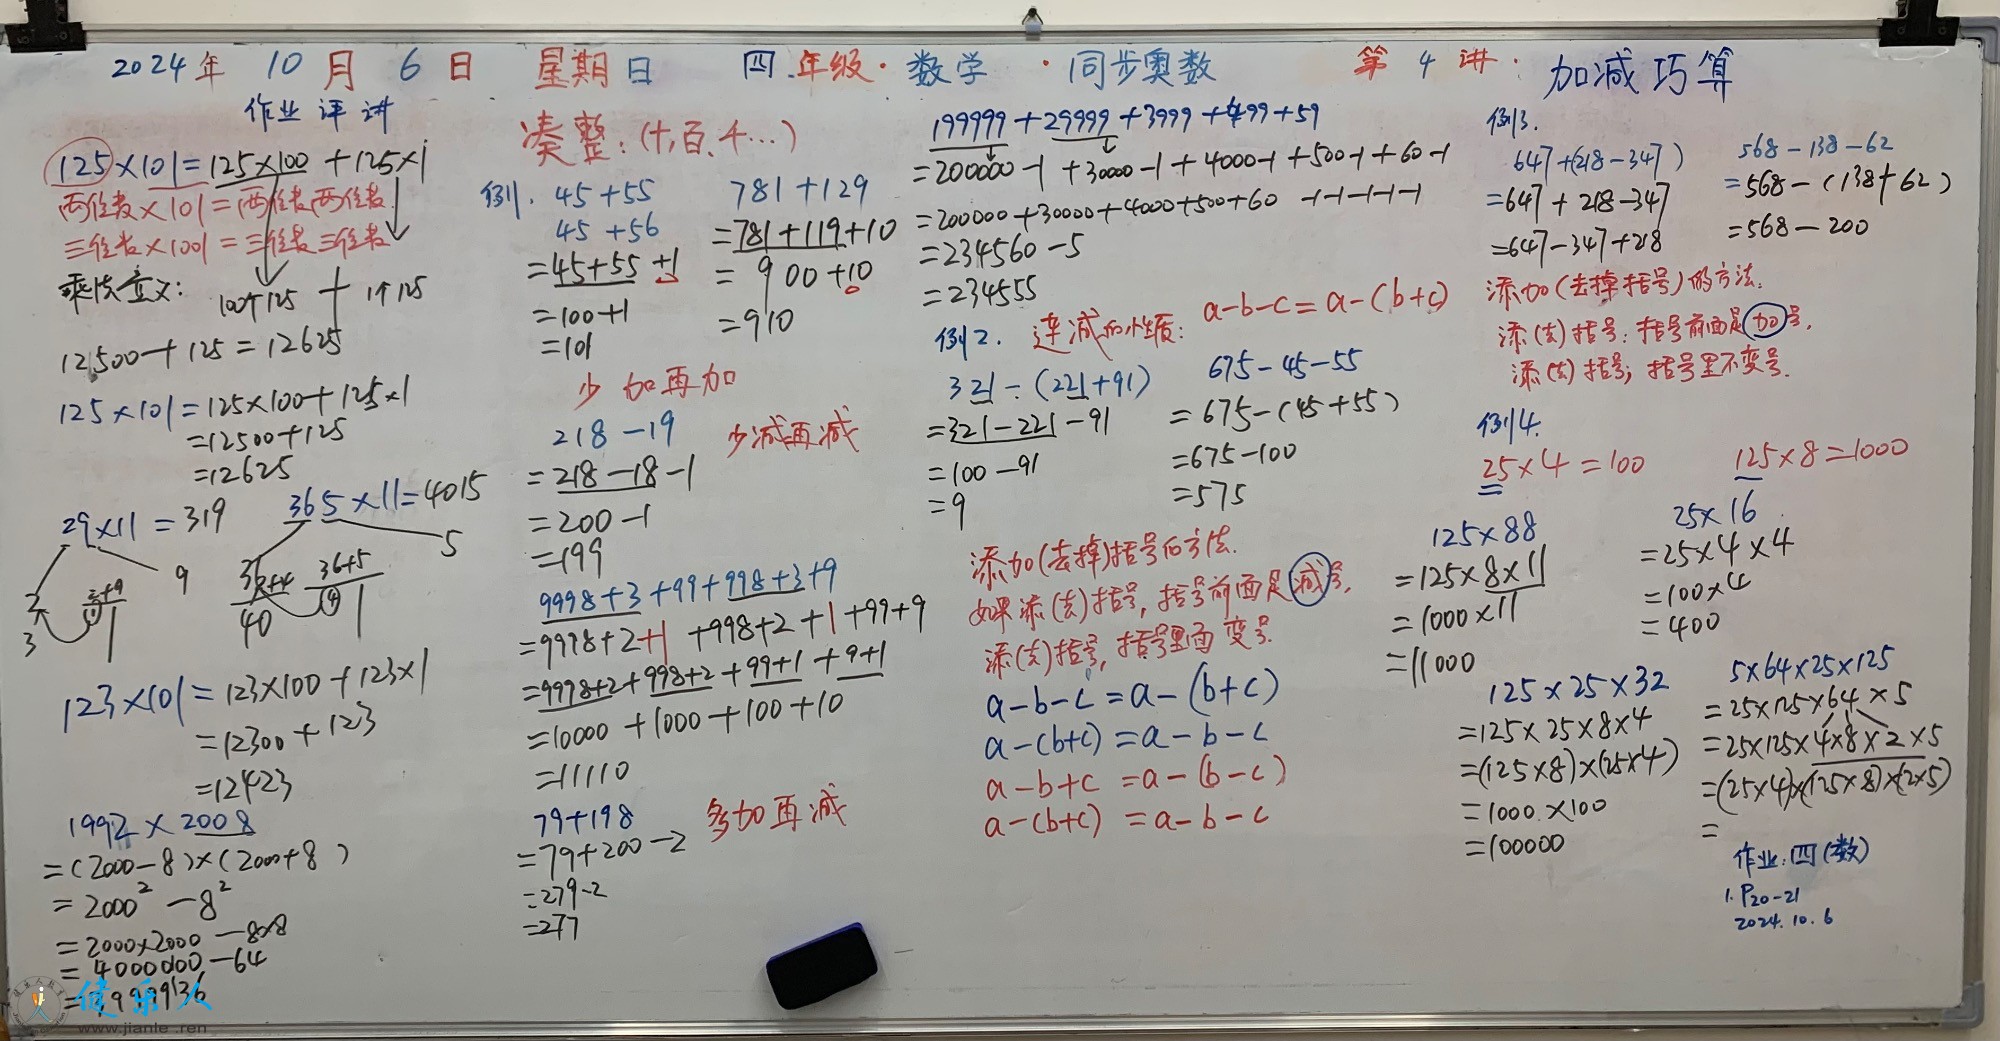 2024年 10月 6日 星期日 四.年级·数学·同步奥数 第4讲· 加减巧算
作业评讲
125×101=125×100+125×1
两位数×101=两位数两位数.
三位数×1001=三位数三位数
乘法意义: 100个125 + 1个125
12500+125=12625
125×101=125×100+125×1
=12500+125
=12625
29×11=319
2 2+9 9
3 (1)1
365×11=4015
36+4 36+5 5
40 (4)1
123×101=123×100+123×1
=12300+123
=12423
1992×2008
=(2000-8)×(2000+8)
=2000²-8²
=2000×2000-8×8
=4000000-64
=3999936
健乐人
www.jianle.ren
凑整:(十,百、千…)
例1. 45+55
45+56
=45+55+1
=100+1
=101
781+129
=781+119+10
=900+10
=910
少加再加
218-19
=218-18-1
=200-1
=199
少减再减
9998+3+99+998+3+9
=9998+2+1+998+2+1+99+9
=9998+2+998+2+99+1+9+1
=10000+1000+100+10
=11110
79+198
=79+200-2
=279-2
=277
多加再减
199999+29999+3999+499+59
=200000-1+30000-1+4000-1+500-1+60-1
=200000+30000+4000+500+60-1-1-1-1-1
=234560-5
=234555
例2. 连减的性质: a-b-c=a-(b+c)
321-(221+91)
=321-221-91
=100-91
=9
675-45-55
=675-(45+55)
=675-100
=575
添加(去掉)括号的方法.
如果添(去)括号,括号前面是减号,
添(去)括号,括号里面变号.
a-b-c=a-(b+c)
a-(b+c)=a-b-c
a-b+c=a-(b-c)
a-(b+c)=a-b-c
例3.
647+(218-347)
=647+218-347
=647-347+218
568-138-62
=568-(138+62)
=568-200
添加(去掉括号)的方法.
添(去)括号:括号前面是加号,
添(去)括号;括号里不变号.
例4.
25×4=100
125×8=1000
125×88
=125×8×11
=1000×11
=11000
25×16
=25×4×4
=100×4
=400
125×25×32
=125×25×8×4
=(125×8)×(25×4)
=1000×100
=100000
5×64×25×125
=25×125×64×5
=25×125×4×8×2×5
=(25×4)×(125×8)×(2×5)
=
作业:四(数)
1.P20-21
2024.10.6